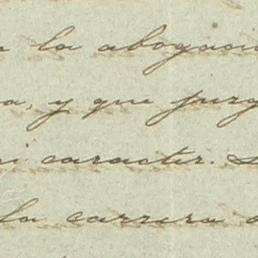 la abogaci
a, y que juzg
i caracter. S
la carrera